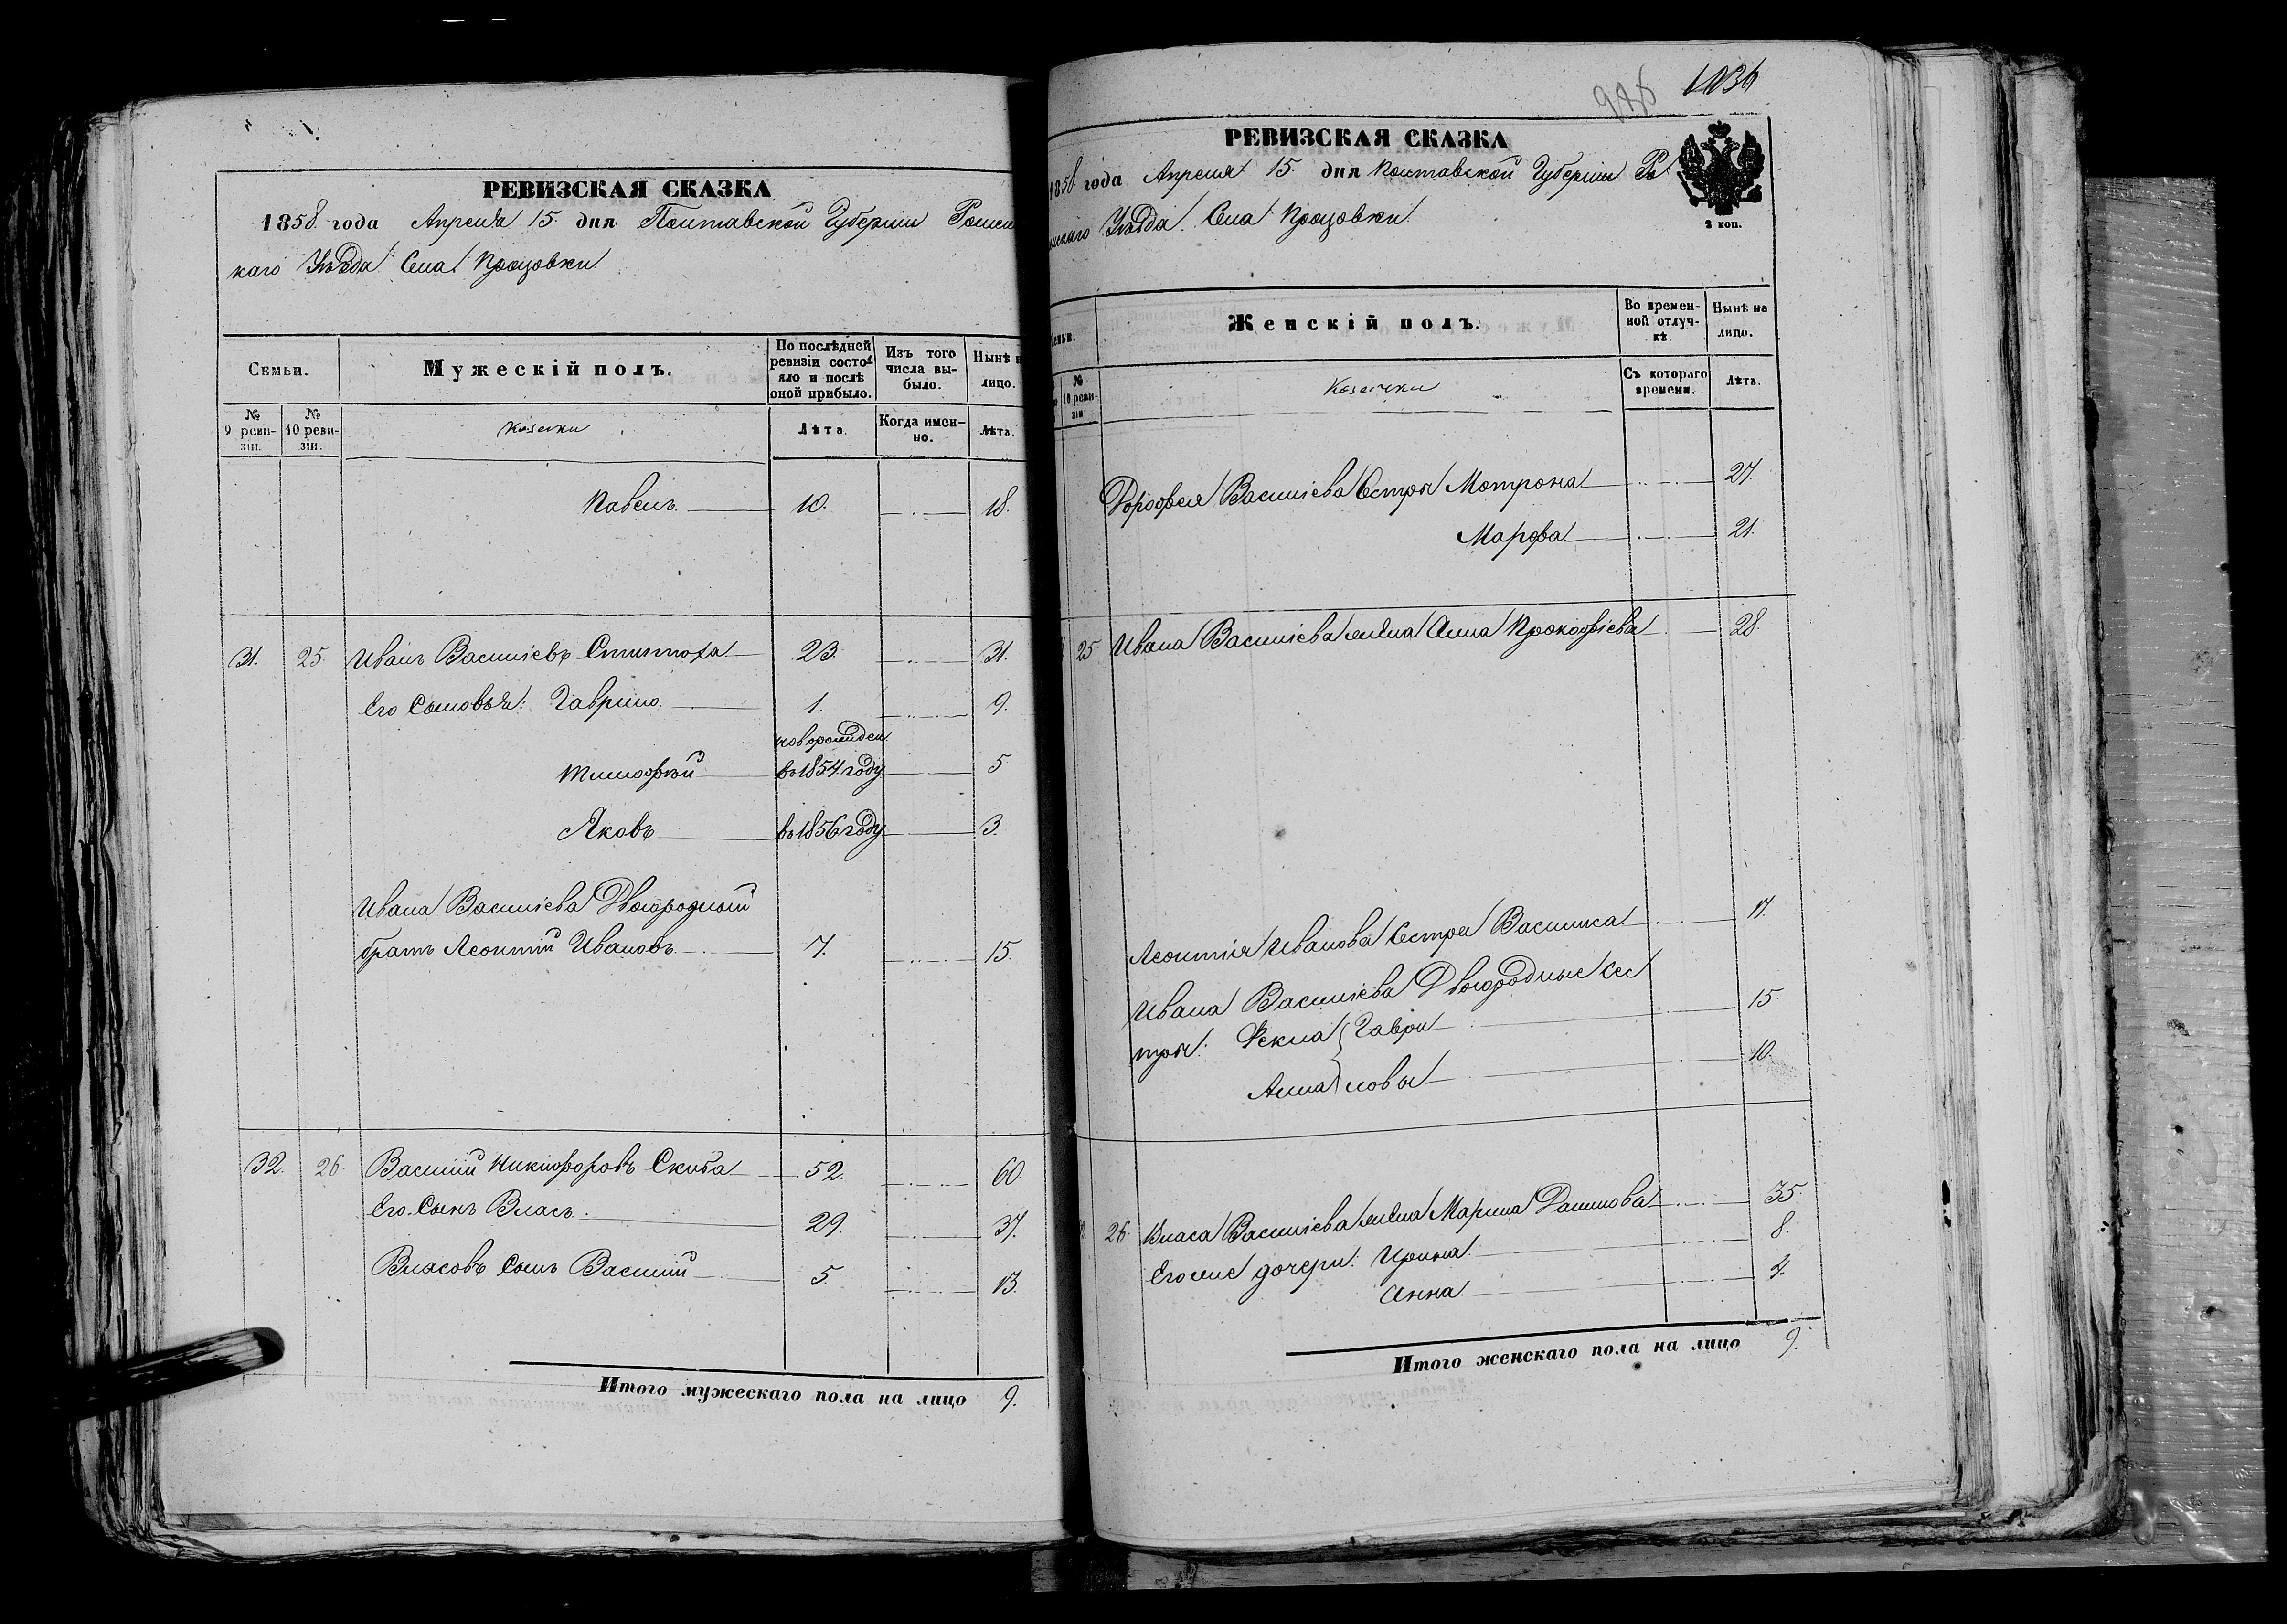 РЕВИЗСКАЯ СКАЗКА
1858 года Апреля 15 дня Полтавской Губернии Ромен
каго Уѣзда Села Процовки
Семьи.
Мужескій полъ.
По послѣдней ревизіи состояло и послѣ оной прибыло.
Изъ того числа выбыло.
Нынѣ на лицо.
№ 9 ревизіи.
№ 10 ревизіи.
Козаки
Лѣта.
Когда именно.
Лѣта.
Павелъ 10. 18.
31. 25. Иванъ Василіевъ 23. 31.
Его Сыновья: Гаврило 1. 9.
новорожден
Тимофѣй въ 1854 году 5
Яковъ въ 1856 году 3.
Ивана Василіева Двоюродный
братъ Леонтій Ивановъ 7. 15.
32. 26. Василій Никифоровъ Скиба 52. 60.
Его Сынъ Власъ 29. 37.
Власовъ Сынъ Василій 5. 13.
Итого мужескаго пола на лицо 9.
1036
РЕВИЗСКАЯ СКАЗКА
1858 года Апреля 15 дня Полтавской Губерніи Ро
менскаго Уѣзда Села Процовки
2 коп.
Семьи.
Женскій полъ.
Во временной отлучкѣ.
Нынѣ на лицо.
№ 10 ревизіи
Козачки
Съ котораго времени.
Лѣта.
Дорофея Василіева Сестры Мотрона 27.
Марфа 21.
25. Ивана Василіева жена Анна Прокофіева 28.
Леонтія Иванова Сестра Василиса 17.
Ивана Василіева Двоюродные Сес
тры: Фекла Гаври 15.
Анна ловы 10.
26. Власа Василіева жена Марина Данилова 35.
Его дочери: Ирина 8.
Анна 4.
Итого женскаго пола на лицо 9.